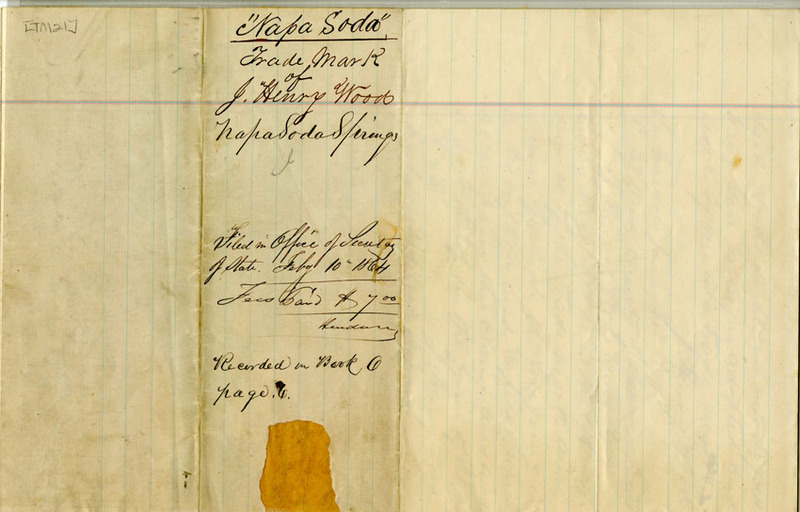 [TM 21]
"Napa Soda",
Trade Mark
of
J. Henry Wood
Napa Soda Springs
Filed in Office of Secretary
of State. Feby 10th 1864
Fees Paid $7.00
Recorded in Book 6
page. 6.